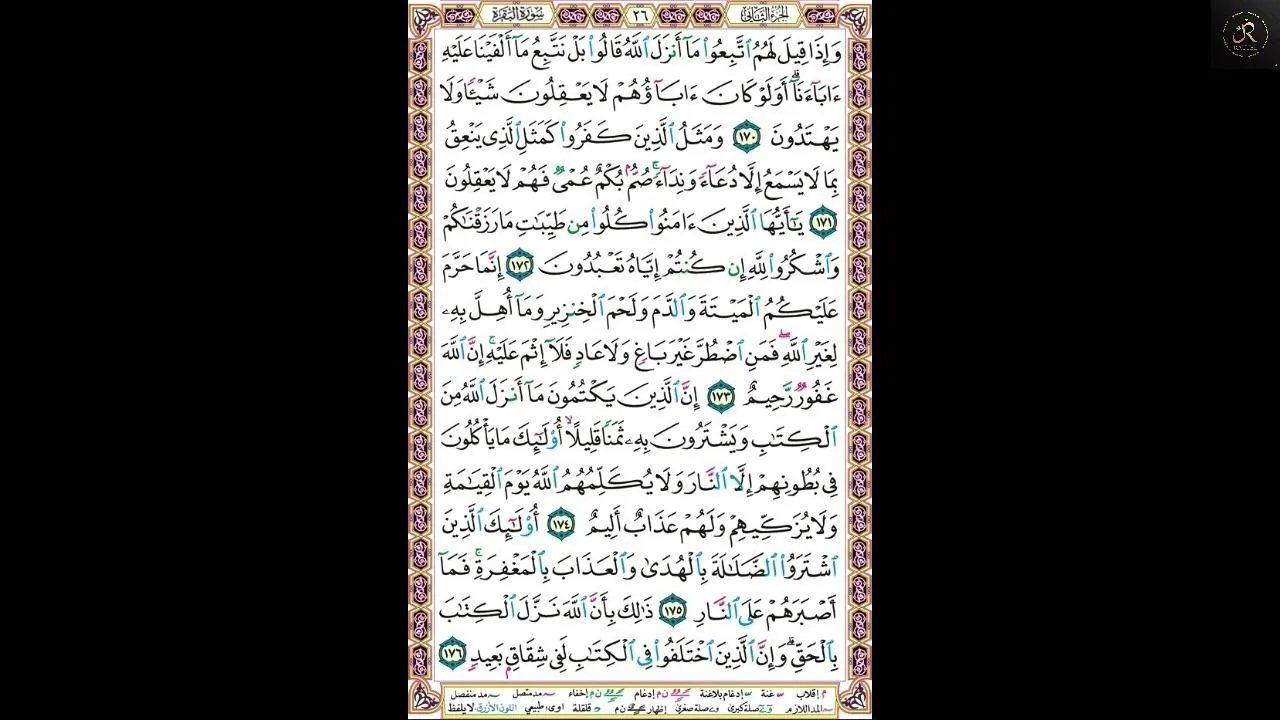 الجزء الثاني ٢٦ سورة البقرة
وَإِذَا قِيلَ لَهُمُ ٱتَّبِعُوا۟ مَآ أَنزَلَ ٱللَّهُ قَالُوا۟ بَلْ نَتَّبِعُ مَآ أَلْفَيْنَا عَلَيْهِ
ءَابَآءَنَآ ۗ أَوَلَوْ كَانَ ءَابَآؤُهُمْ لَا يَعْقِلُونَ شَيْـًٔا وَلَا
يَهْتَدُونَ ١٧٠ وَمَثَلُ ٱلَّذِينَ كَفَرُوا۟ كَمَثَلِ ٱلَّذِى يَنْعِقُ
بِمَا لَا يَسْمَعُ إِلَّا دُعَآءً وَنِدَآءً ۚ صُمٌّۢ بُكْمٌ عُمْىٌ فَهُمْ لَا يَعْقِلُونَ
١٧١ يَـٰٓأَيُّهَا ٱلَّذِينَ ءَامَنُوا۟ كُلُوا۟ مِن طَيِّبَـٰتِ مَا رَزَقْنَـٰكُمْ
وَٱشْكُرُوا۟ لِلَّهِ إِن كُنتُمْ إِيَّاهُ تَعْبُدُونَ ١٧٢ إِنَّمَا حَرَّمَ
عَلَيْكُمُ ٱلْمَيْتَةَ وَٱلدَّمَ وَلَحْمَ ٱلْخِنزِيرِ وَمَآ أُهِلَّ بِهِۦ
لِغَيْرِ ٱللَّهِ ۖ فَمَنِ ٱضْطُرَّ غَيْرَ بَاغٍ وَلَا عَادٍ فَلَآ إِثْمَ عَلَيْهِ ۚ إِنَّ ٱللَّهَ
غَفُورٌ رَّحِيمٌ ١٧٣ إِنَّ ٱلَّذِينَ يَكْتُمُونَ مَآ أَنزَلَ ٱللَّهُ مِنَ
ٱلْكِتَـٰبِ وَيَشْتَرُونَ بِهِۦ ثَمَنًا قَلِيلًا ۙ أُو۟لَـٰٓئِكَ مَا يَأْكُلُونَ
فِى بُطُونِهِمْ إِلَّا ٱلنَّارَ وَلَا يُكَلِّمُهُمُ ٱللَّهُ يَوْمَ ٱلْقِيَـٰمَةِ
وَلَا يُزَكِّيهِمْ وَلَهُمْ عَذَابٌ أَلِيمٌ ١٧٤ أُو۟لَـٰٓئِكَ ٱلَّذِينَ
ٱشْتَرَوُا۟ ٱلضَّلَـٰلَةَ بِٱلْهُدَىٰ وَٱلْعَذَابَ بِٱلْمَغْفِرَةِ ۚ فَمَآ
أَصْبَرَهُمْ عَلَى ٱلنَّارِ ١٧٥ ذَٰلِكَ بِأَنَّ ٱللَّهَ نَزَّلَ ٱلْكِتَـٰبَ
بِٱلْحَقِّ ۗ وَإِنَّ ٱلَّذِينَ ٱخْتَلَفُوا۟ فِى ٱلْكِتَـٰبِ لَفِى شِقَاقٍۭ بَعِيدٍ ١٧٦
م إقلاب غنة إدغام بلاغنة ن م إدغام ن م إخفاء مد متصل مد منفصل
المد اللازم صلة كبرى صلة صغرى إظهار ن م قلقلة اوى طبيعي اللون الأزرق لا يلفظ